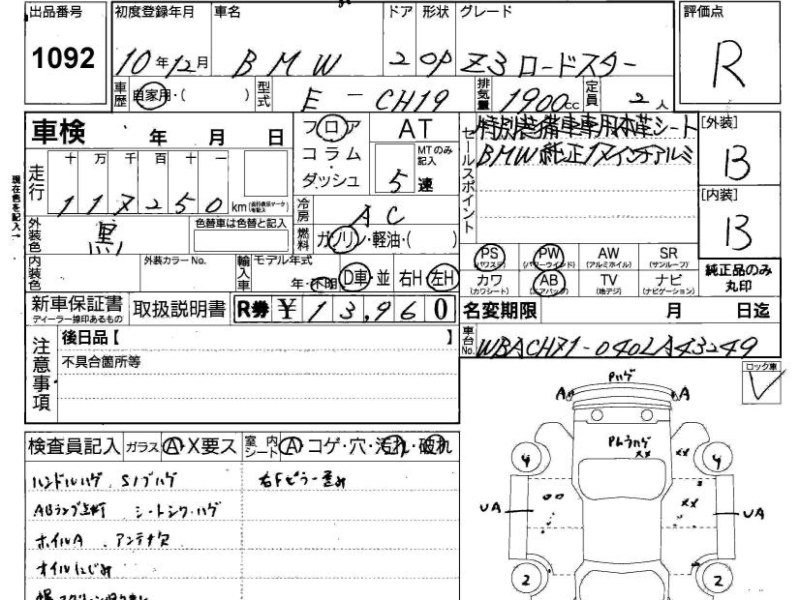 出品番号
1092
初度登録年月
10年12月
車名
BMW
ドア
2
形状
OP
グレード
Z3 ロードスター
評価点
R
車歴
自家用・( )
型式
E-CH19
排気量
1900cc
定員
2人
車検
年 月 日
フロア
コラム
・
ダッシュ
AT
MTのみ記入
5速
セールスポイント
特別装備車専用本革シート
[外装]
B
[内装]
B
現在色を記入→
走行
十 万 千 百 十 一
117250 km
冷房
AC
燃料
ガソリン・軽油・( )
外装色
黒
色替車は色替と記入
内装色
外装カラーNo.
輸入車
モデル年式
年・不明
D車・並
右H・左H
PS
(パワステ)
PW
(パワーウインド)
AW
(アルミホイル)
SR
(サンルーフ)
カワ
(カワシート)
AB
(エアバック)
TV
(地デジ)
ナビ
(ナビゲーション)
純正品のみ
丸印
新車保証書
ディーラー捺印あるもの
取扱説明書
R券 ¥13,960
名変期限
月 日迄
車台No.
WBACH71-040LA43249
注意事項
後日品【 】
不具合箇所等
ロック車
検査員記入
ガラス
A・X要ス
室内シート
A・コゲ・穴・汚れ・破れ
ハンドルハゲ Sノブハゲ
右Fピラー歪み
ABランプ点灯 シートシワ・ハゲ
ホイルA アンテナ欠
オイルにじみ
Pハゲ
A
A
4
4
UA
UA
2
2